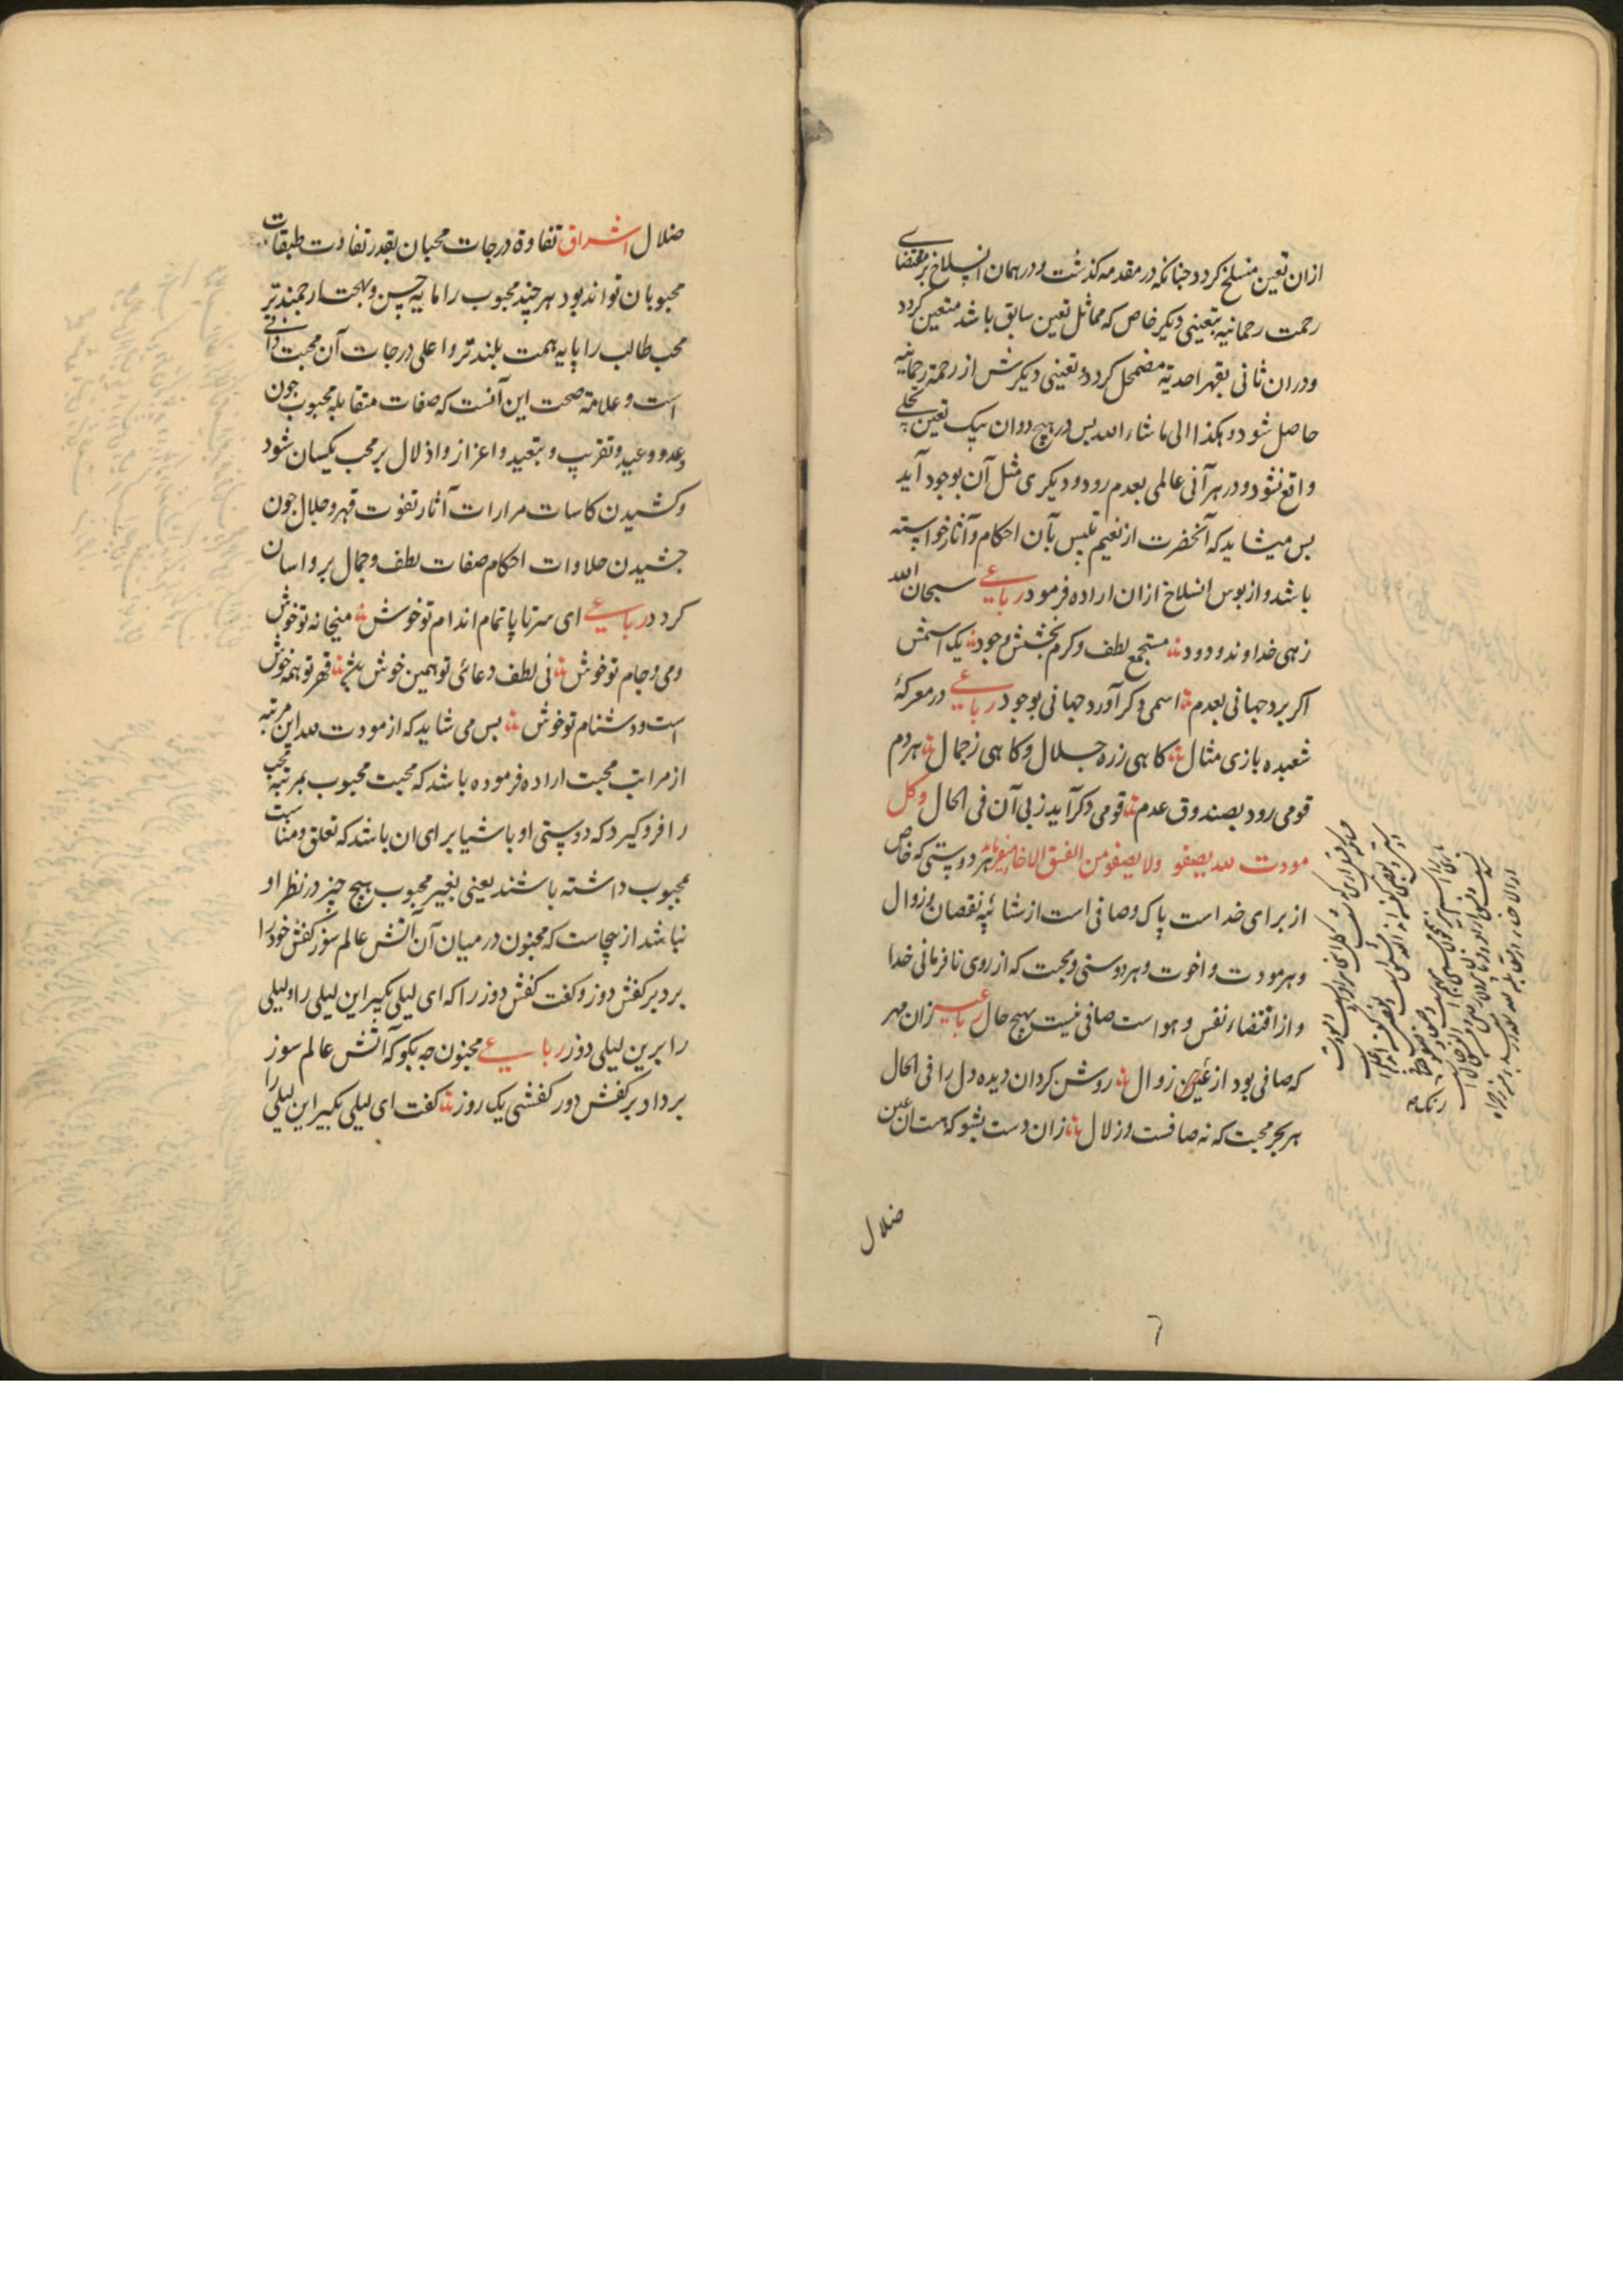 ازان تعین منسلخ کردد جنانکه در مقدمه کذشت و در همان انسلاخ بر مقتضای
رحمت رحمانیه بتعینی دیکر خاص که مماثل تعین سابق باشد متعین کردد
و در ان ثانی بقهر احدیة مضمحل کردد و تعینی دیکرش از رحمة رحمانیه
حاصل شود و هکذا الی ما شاء الله بس در هیچ دو ان بیک تعین تجلی
واقع نشود و در هر آنی عالمی بعدم رود و دیکری مثل آن بوجود آید
بس میشاید که آنحضرت از نعیم تلبس بآن احکام و آثار خواسته
باشد و از بوس انسلاخ ازان اراده فرمود رباعی سبحان الله
زهی خداوند ودود مستجمع لطف و کرم بخشش و جود یک اسمش
اکر برد جهانی بعدم اسمی دکر آورد جهانی بوجود رباعی در معرکهٔ
شعبده بازی مثال کاهی زره جلال و کاهی زجمال هر دم
قومی رود بصندوق عدم قومی دکر آید زبی آن فی الحال وکل
مودت لله یصفو ولا یصفو من الفسق الاخا میفرماید هر دوستی که خاص
از برای خداست پاک و صافی است از شائبه نقصان و زوال
و هر مودت و اخوت و هر دوستی و محبت که از روی نافرمانی خدا
و از اقتضاء نفس و هواست صافی نیست بهیج حال رباعی زان مهر
که صافی بود از غین زوال روشن کردان دیده دل را فی الحال
هر بحر محبت که نه صافست و زلال زان دست بشو که هست ان عین
ضلال
ضلال اشراق تفاوة درجات محبان بقدر تفاوت طبقات
محبوبان تواند بود هر چند محبوب را مایه حسن و بهجت ارجمندتر
محب طالب را پایه همت بلندتر و اعلی درجات آن محبت ذاتی
است و علامة صحت این آنست که صفات متقابله محبوب جون
وعد و وعید و تقریب و تبعید و اعزاز و اذلال بر محب یکسان شود
و کشیدن کاسات مرارات آثار نعوت قهر و جلال جون
جشیدن حلاوات احکام صفات لطف و جمال برو اسان
کردد رباعی ای سر تا پا تمام اندام تو خوش میخانه تو خوش
و می و جام تو خوش نی لطف و دعائی تو همین خوش قهر تو همه خوش
است و دشنام تو خوش بس می شاید که از مودت لله این مرتبه
از مراتب محبت اراده فرموده باشد که محبت محبوب بمرتبه محب
را فرو کیرد که دوستی او باشیا برای ان باشد که تعلق و مناسبت
بمحبوب داشته باشند یعنی بغیر محبوب هیچ چیز در نظر او
نباشد از بنجاست که مجنون در میان آن آتش عالم سوز کفش خود را
برد بر کفش دوز و کفت کفش دوز را که ای لیلی بکیر این لیلی را و لیلی
را برین لیلی دوز رباعی مجنون جه بکو که آتش عالم سوز
برداد بر کفش دور کفشی یک روز کفت ای لیلی بکیر این لیلی را